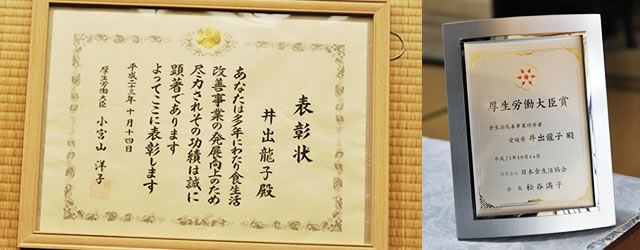 表彰状
井出龍子殿
あなたは多年にわたり食生活
改善事業の発展向上のため
尽力されその功績は誠に
顕著であります
よってここに表彰します
平成二十三年十月十四日
厚生労働大臣 小宮山洋子
厚生労働大臣賞
食生活改善事業功労者
愛媛県 井出龍子 殿
平成23年10月14日
財団法人 日本食生活協会
会長 松谷満子